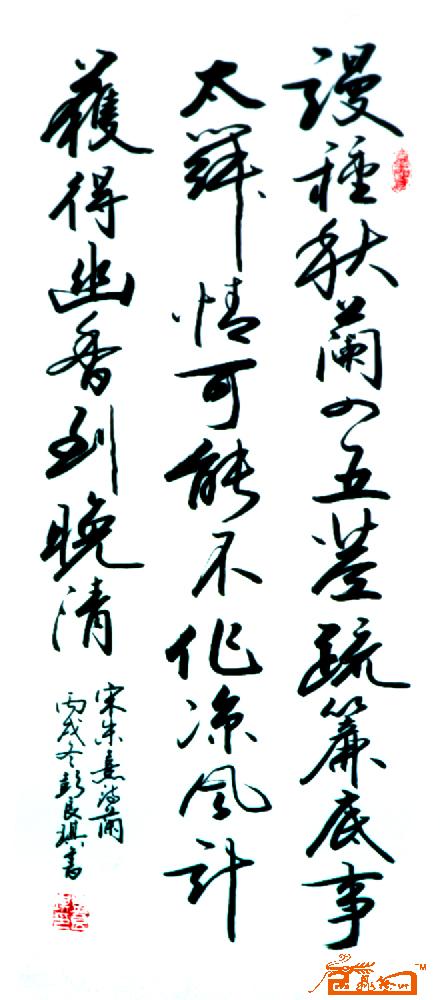 謾種秋蘭四五莖疏簾底事
太關情可能不作凉風計
獲得幽香到晚清
宋朱熹詩蘭
丙戌冬彭良琪書